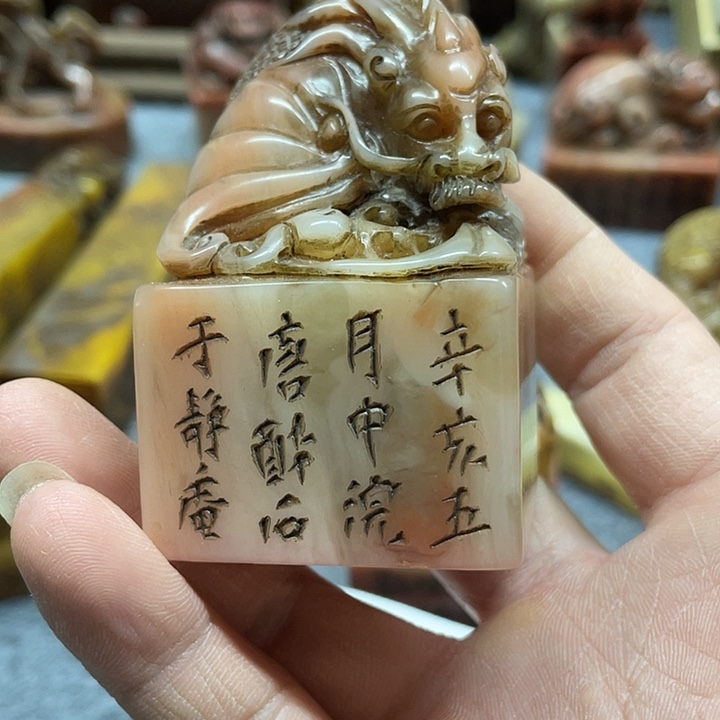 辛亥五
月中浣
唐醉石
于静庵